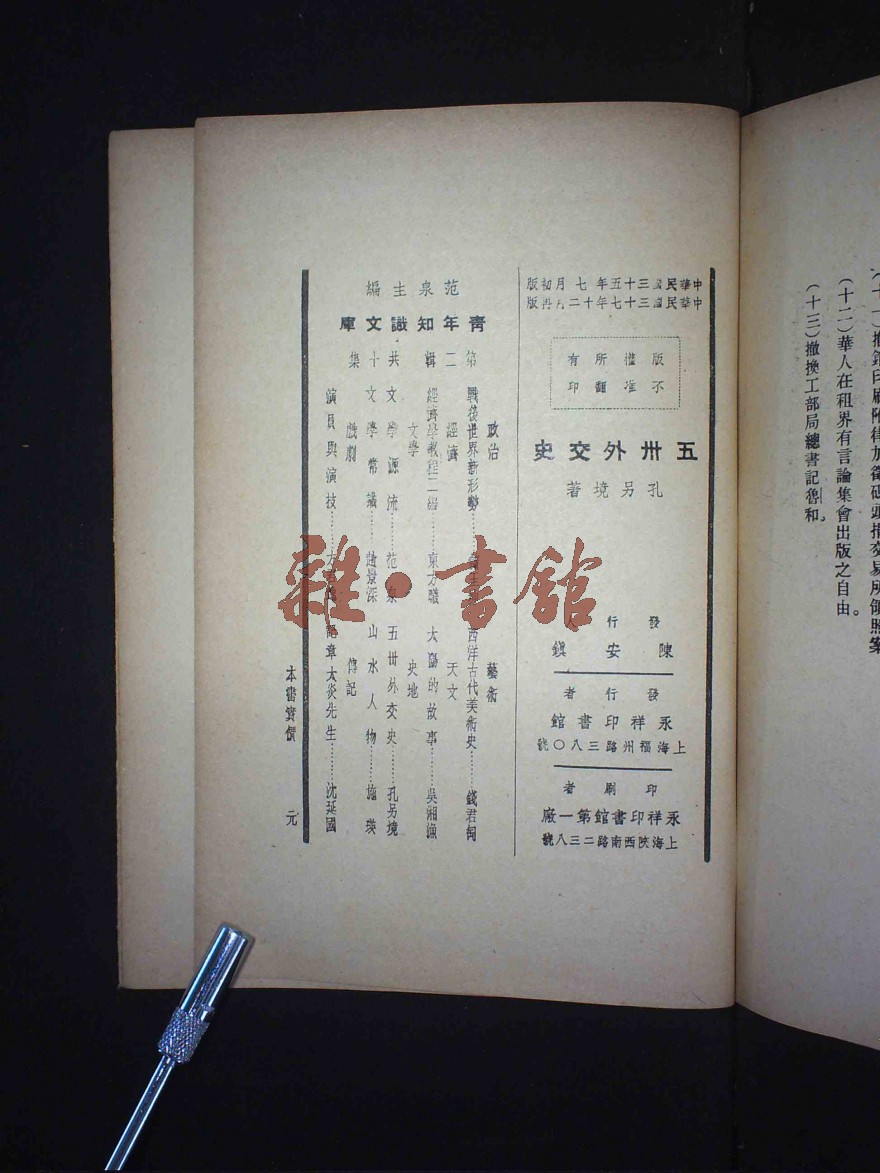 (十一)撤銷印刷附律加徵碼頭捐交易所領照案
(十二)華人在租界有言論集會出版之自由。
(十三)撤換工部局總書記魯和。
中華民國三十五年七月初版
中華民國三十七年十二月再版
版權所有
不准翻印
五卅外交史
孔另境著
發行人
陳安鎮
發行者
永祥印書館
上海福州路三八〇號
印刷者
永祥印書館第一廠
上海陝西南路二三八號
范泉主編
青年知識文庫
第二輯共十集
政治
戰後世界新形勢……
經濟
經濟學教程二編……東方曦
文學
文學源流……范泉
文學常識……趙景深
戲劇
演員與演技……方君逸
藝術
西洋古代美術史……錢君匋
天文
太陽的故事……吳湘漁
史地
五卅外交史……孔另境
山水人物……施瑛
傳記
記章太炎先生……沈延國
本書實價 元
雜·書館